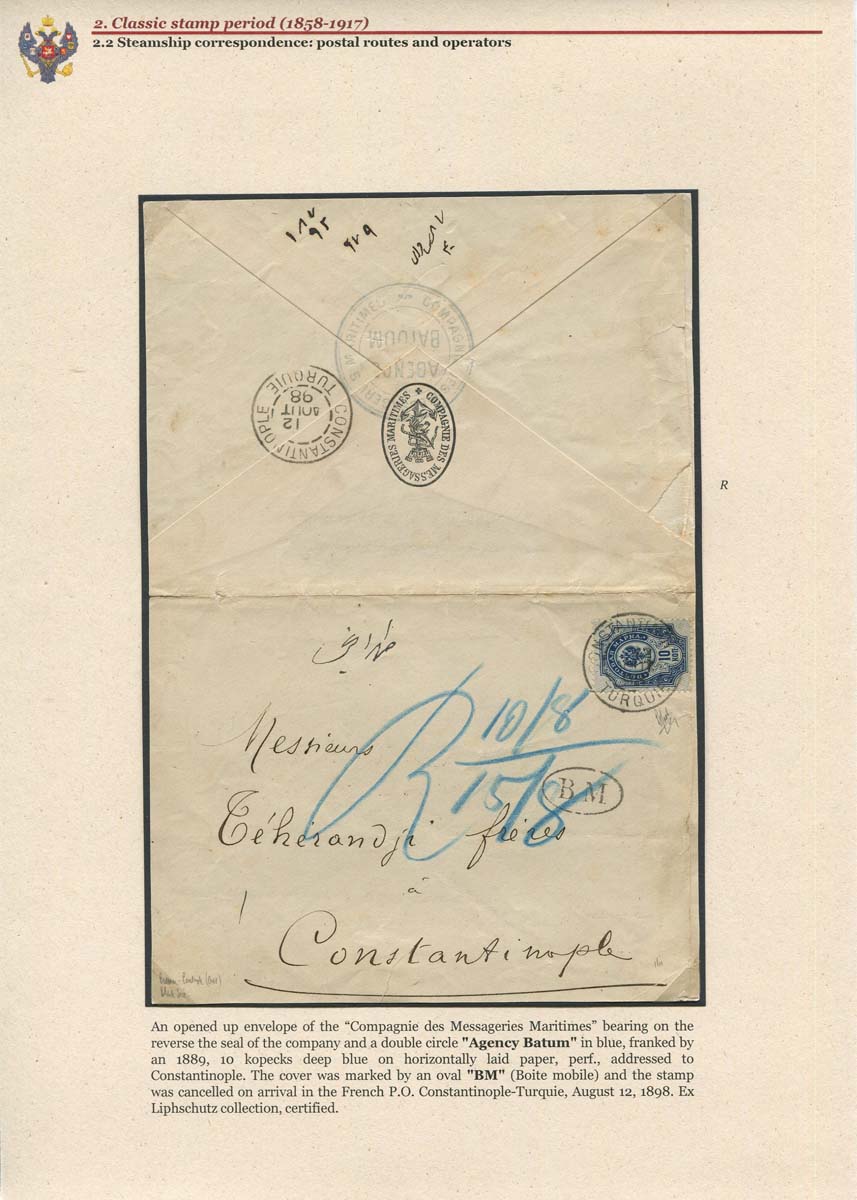 2. Classic stamp period (1858-1917)
2.2 Steamship correspondence: postal routes and operators
۱۸۷
۹۲
۹۲۹
COMPAGNIE DES MESSAGERIES MARITIMES
AGENCE
BATOUM
CONSTANTINOPLE
12
AOUT
98
TURQUIE
COMPAGNIE DES MESSAGERIES MARITIMES
R
CONSTANTINOPLE
TURQUIE
10
КОП
ПОЧТОВАЯ МАРКА
Messieurs
R 10/8
15/8
BM
Téhérandji frères
à
Constantinople
An opened up envelope of the “Compagnie des Messageries Maritimes” bearing on the
reverse the seal of the company and a double circle "Agency Batum" in blue, franked by
an 1889, 10 kopecks deep blue on horizontally laid paper, perf., addressed to
Constantinople. The cover was marked by an oval "BM" (Boite mobile) and the stamp
was cancelled on arrival in the French P.O. Constantinople-Turquie, August 12, 1898. Ex
Liphschutz collection, certified.